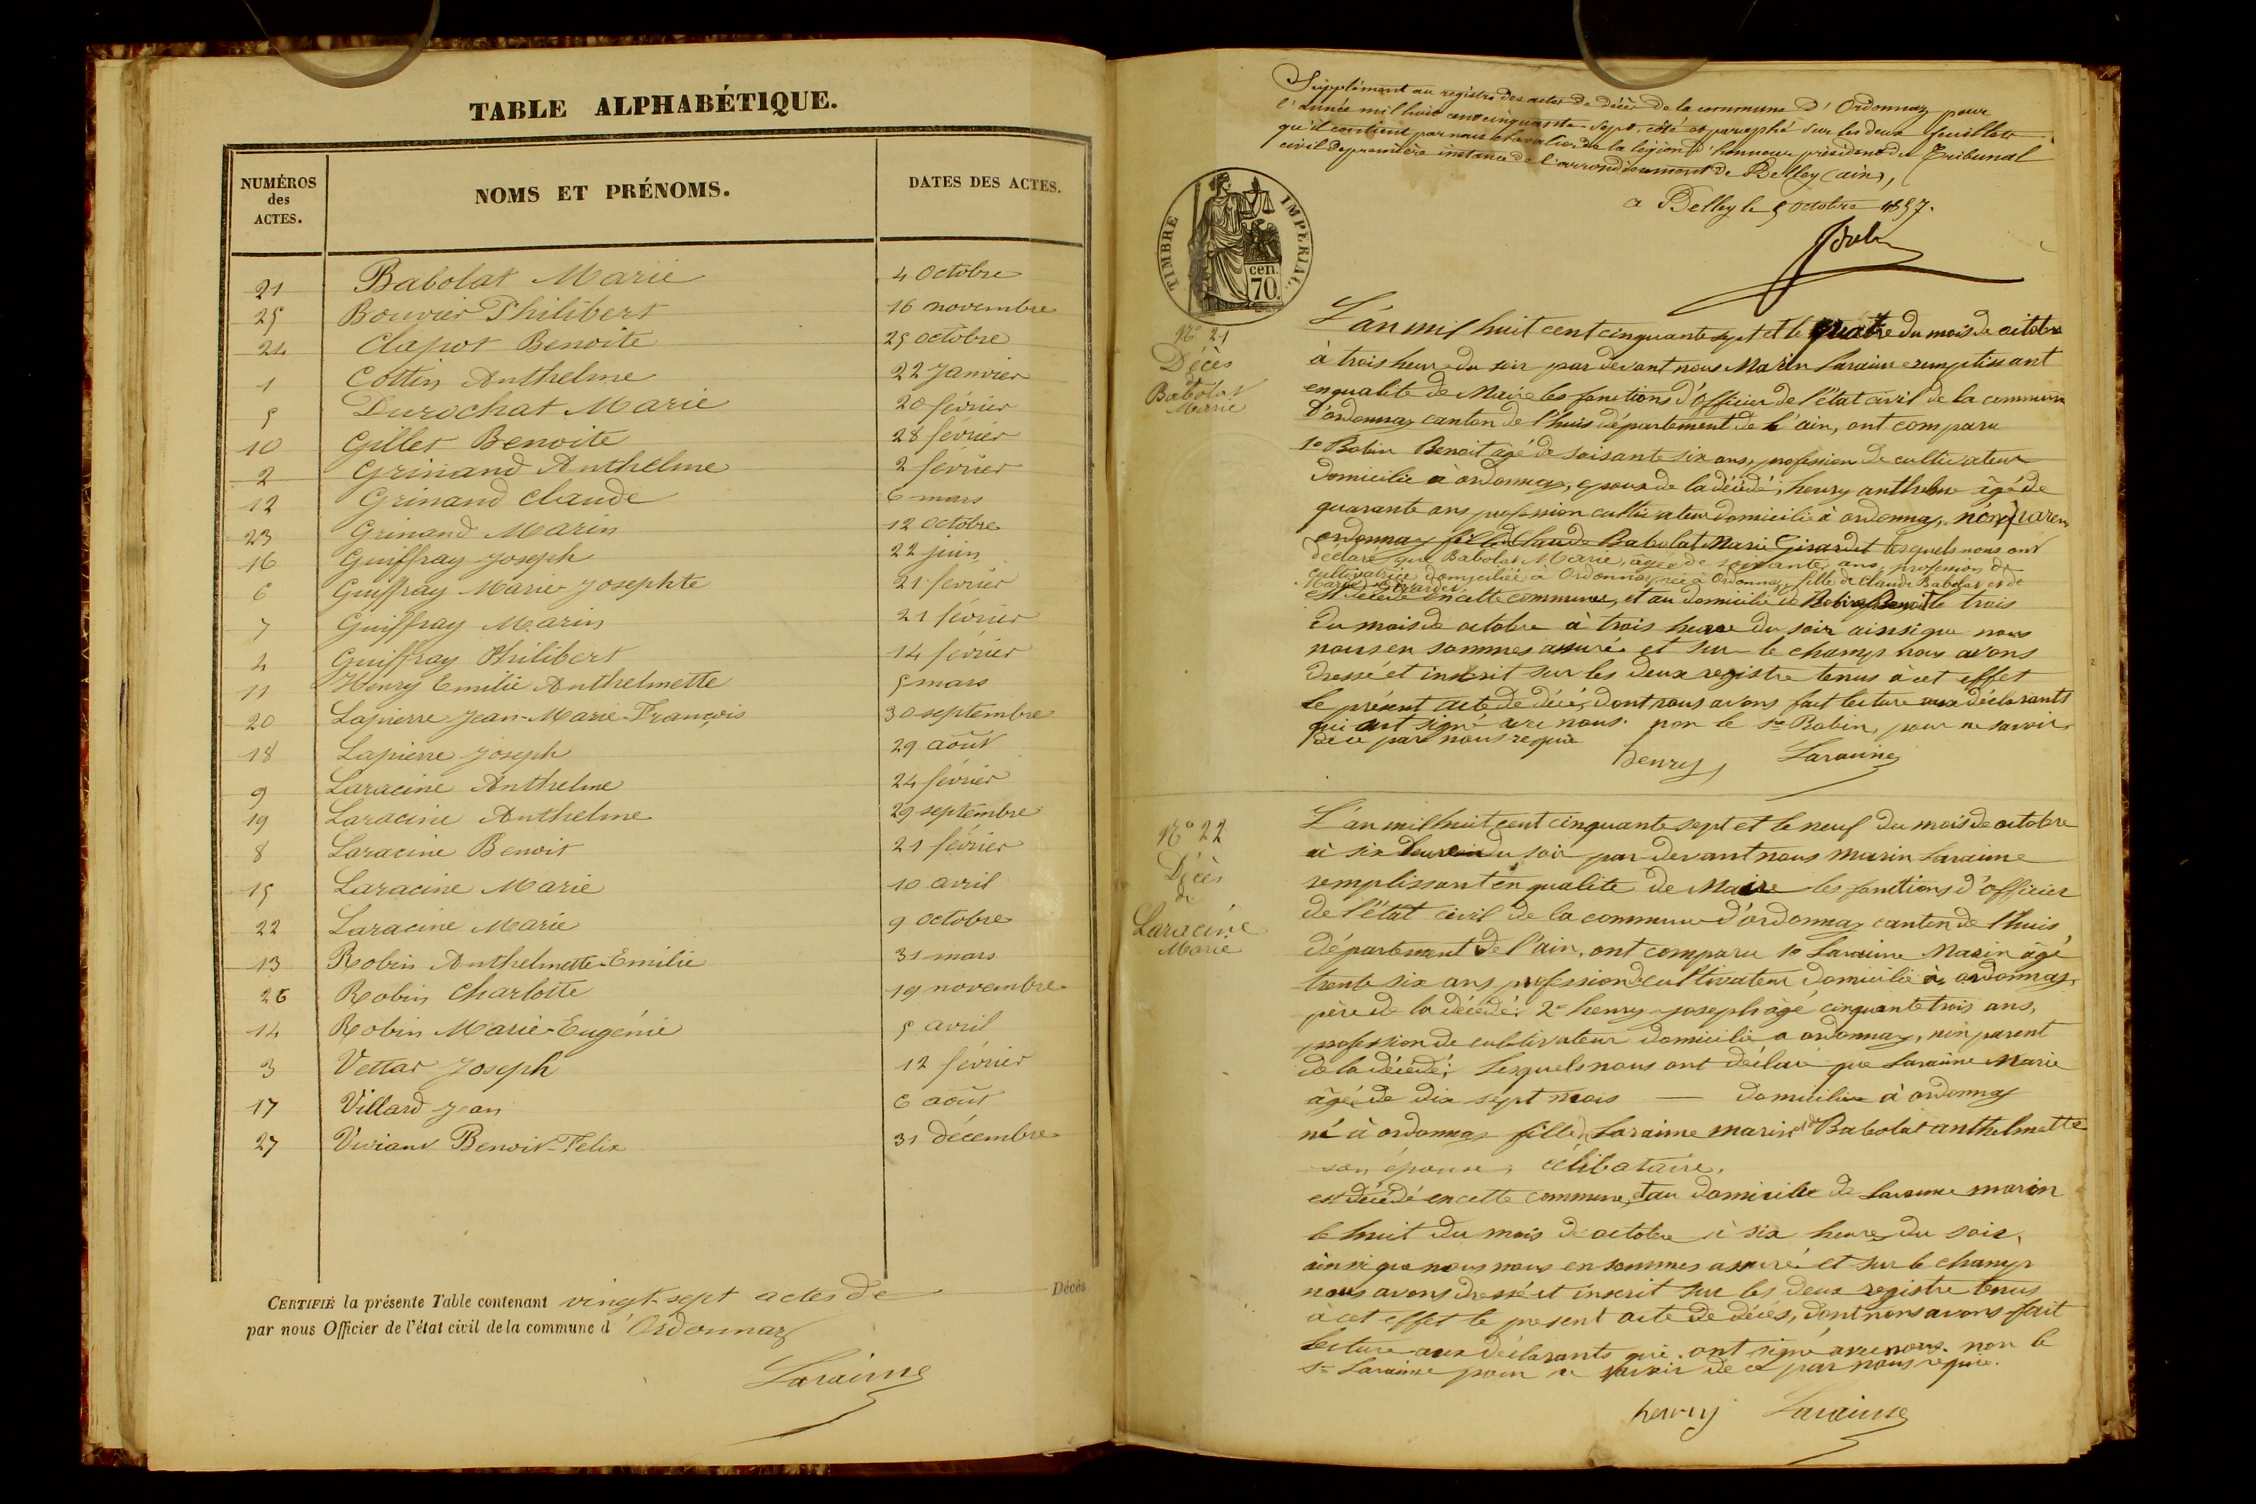 TABLE ALPHABÉTIQUE.
NUMÉROS des ACTES. NOMS ET PRÉNOMS. DATES DES ACTES.
21 Babolat Marie 4 octobre
25 Bouvier Philibert 16 novembre
24 Clapot Benoite 25 octobre
1 Cottin Anthelme 22 Janvier
5 Durochat Marie 20 février
10 Gillet Benoite 28 février
2 Grinand Anthelme 2 février
12 Grinand Claude 6 mars
23 Grinand Marin 12 octobre
16 Guiffray Joseph 22 juin
6 Guiffray Marie-Josephte 21 février
7 Guiffray Marin 21 février
4 Guiffray Philibert 14 février
11 Henry Emilie Anthelmette 5 mars
20 Lapierre Jean-Marie-François 30 septembre
18 Lapierre Joseph 29 août
9 Laracine Anthelme 24 février
19 Laracine Anthelme 29 septembre
8 Laracine Benoit 21 février
15 Laracine Marie 10 avril
22 Laracine Marie 9 octobre
13 Robin Anthelmette-Emilie 31 mars
26 Robin Charlotte 19 novembre
14 Robin Marie-Eugénie 5 avril
3 Vettar Joseph 12 février
17 Villard Jean 6 août
27 Viviant Benoit-Felix 31 décembre
CERTIFIÉ la présente Table contenant vingt-sept actes de Décès
par nous Officier de l'état civil de la commune d'Ordonnaz
Laracine
Supplément au registre des actes de décès de la commune d'Ordonnaz pour
l'année mil huit cent cinquante-sept, côté et paraphé sur les deux feuillets
qu'il contient par nous chevalier de la légion d'honneur président du Tribunal
civil de première instance de l'arrondissement de Belley (ain),
a Belley le 5 octobre 1857.
TIMBRE IMPÉRIAL.
cen.
70.
N° 21
Décès
de
Babolat
Marie
L'an mil huit cent cinquante sept et le quatre du mois de octobre
à trois heure du soir par devant nous Marin Laracine remplissant
en qualite de Maire les fonctions d'officier de l'état civil de la commune
d'ordonnaz canton de l'huis département de l'ain, ont comparu
1° Robin Benoit âgé de soisante six ans, profession de cultivateur
domicilié à ordonnaz, epoux de la décédé, henry anthelme âgé de
quarante ans profession cultivateur domicilié à ordonnaz, non paren
ordonnaz fille de Claude Babolat Marie Girardet lesquels nous ont
déclaré que Babolat Marie, âgée de soixante ans, profession de
cultivatrice domiciliée à Ordonnaz née à Ordonnaz, fille de Claude Babolat et de
Marie Girardet
est décédé en cette commune, et au domicile de Robin Benoit le trois
du mois de octobre à trois heure du soir ainsi que nous
nous en sommes assuré et sur le champ nous avons
dressé et inscrit sur les deux registre tenus à cet effet
le présent acte de décés dont nous avons fait lecture aux déclarants
qui ont signé avec nous. non le Sr Robin, pour ne savoir
de ce par nous requis
henry Laracine
N° 22
Décès
de
Laracine
Marie
L'an mil huit cent cinquante sept et le neuf du mois de octobre
à six heure du soir par devant nous marin Laracine
remplissant en qualite de Maire les fonctions d'officier
de l'état civil de la commune d'ordonnaz canton de l'huis
département de l'ain, ont comparu 1° Laracine Marin âgé
trente six ans profession de cultivateur domicilié à ordonnaz,
père de la décédé; 2° henry joseph âgé cinquante trois ans,
profession de cultivateur domicilié a ordonnaz, non parent
de la décédé; Lesquels nous ont déclaré que Laracine Marie
âgé de dix sept mois — domicilié à ordonnaz
né à ordonnaz fille de Laracine marin et de Babolat anthelmette
son épouse, célibataire,
est décédé en cette commune, et au domicile de Laracine marin
le huit du mois de octobre à six heure du soir,
ainsi que nous nous en sommes assuré et sur le champ
nous avons dressé et inscrit sur les deux registre tenus
à cet effet le present acte de décés, dont nous avons fait
lecture aux déclarants qui ont signé avec nous. non le
Sr Laracine pour ne savoir de ce par nous requis.
henry Laracine